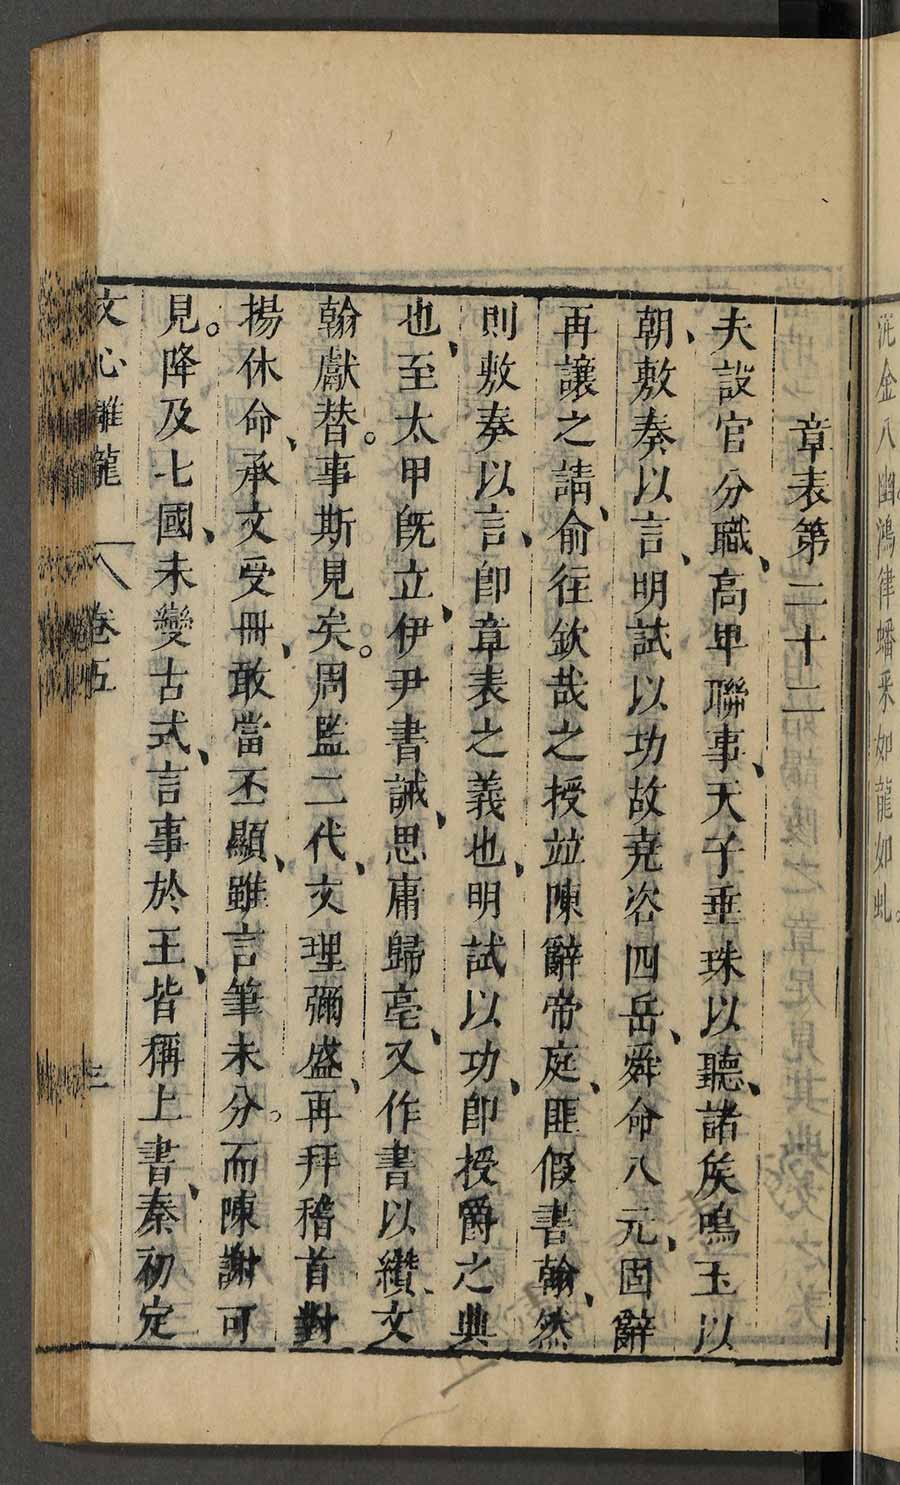 泥金八幽鴻律蟠采如龍如虬。
章表第二十二
夫設官分職、高卑聯事、天子垂珠以聽、諸矦鳴玉以
朝、敷奏以言、明試以功故堯咨四岳、舜命八元、固辭
再讓之請、俞往欽哉之授竝陳辭帝庭、匪假書翰、然
則敷奏以言、卽章表之義也、明試以功、卽授爵之典
也、至太甲旣立、伊尹書誡、思庸歸亳、又作書以纘、文
翰獻替。事斯見矣。周監二代、文理彌盛、再拜稽首對
揚休命、承文受冊、敢當丕顯、雖言筆未分。而陳謝可
見。降及七國、未變古式、言事於王、皆稱上書、秦初定
文心雕龍 卷五 三